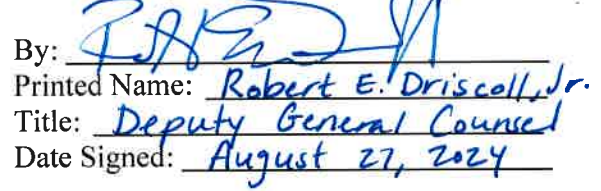 By:
Printed Name: Robert E. Driscoll, Jr.
Title: Deputy General Counsel
Date Signed: August 27, 2024